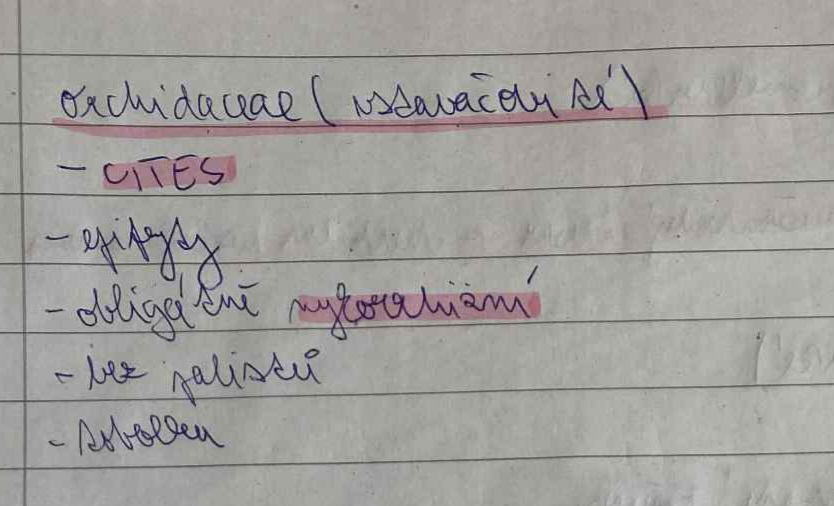 orchidaceae (vstavačovité)
- CITES
- epifyty
- obligátně mykorhizní
- bez palistů
- tobolka